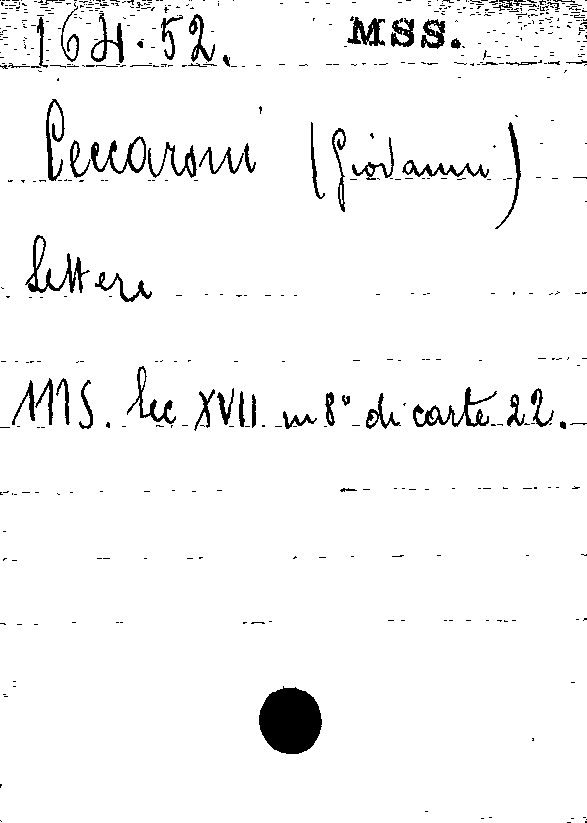 16 H. 52. MSS.
Peccaroni (Giovanni)
Lettere
MS. Sec XVII in 8° di carte 22.